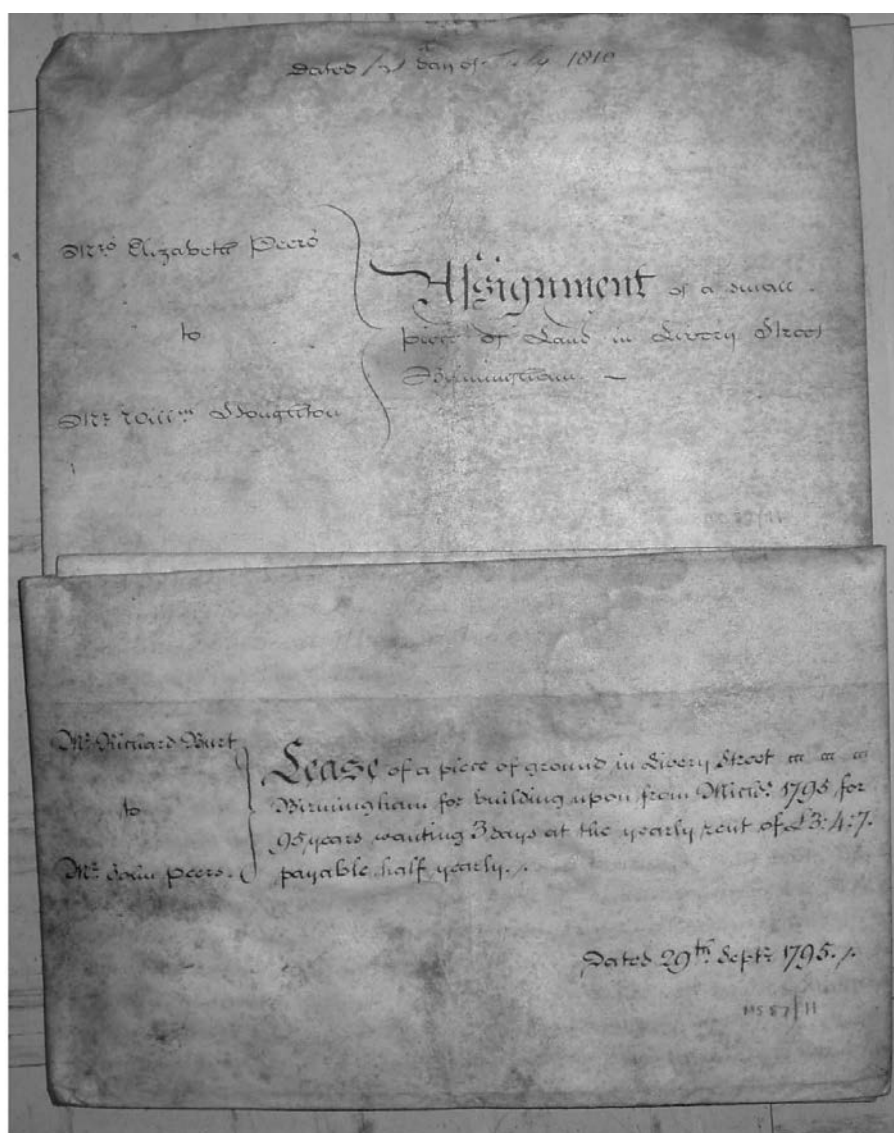 Dated 1st day of July 1810
Mrs Elizabeth Peers
to
Mr Willm Houghton
Assignment of a small
piece of Land in Livery Street
Birmingham.
Mr Richard Burt
to
Mr John Peers.
Lease of a piece of ground in Livery Street
Birmingham for building upon from Michs 1795 for
95 years wanting 3 days at the yearly rent of £3:4:7.
payable half yearly.
Dated 29th Septr 1795.
MS 87/11